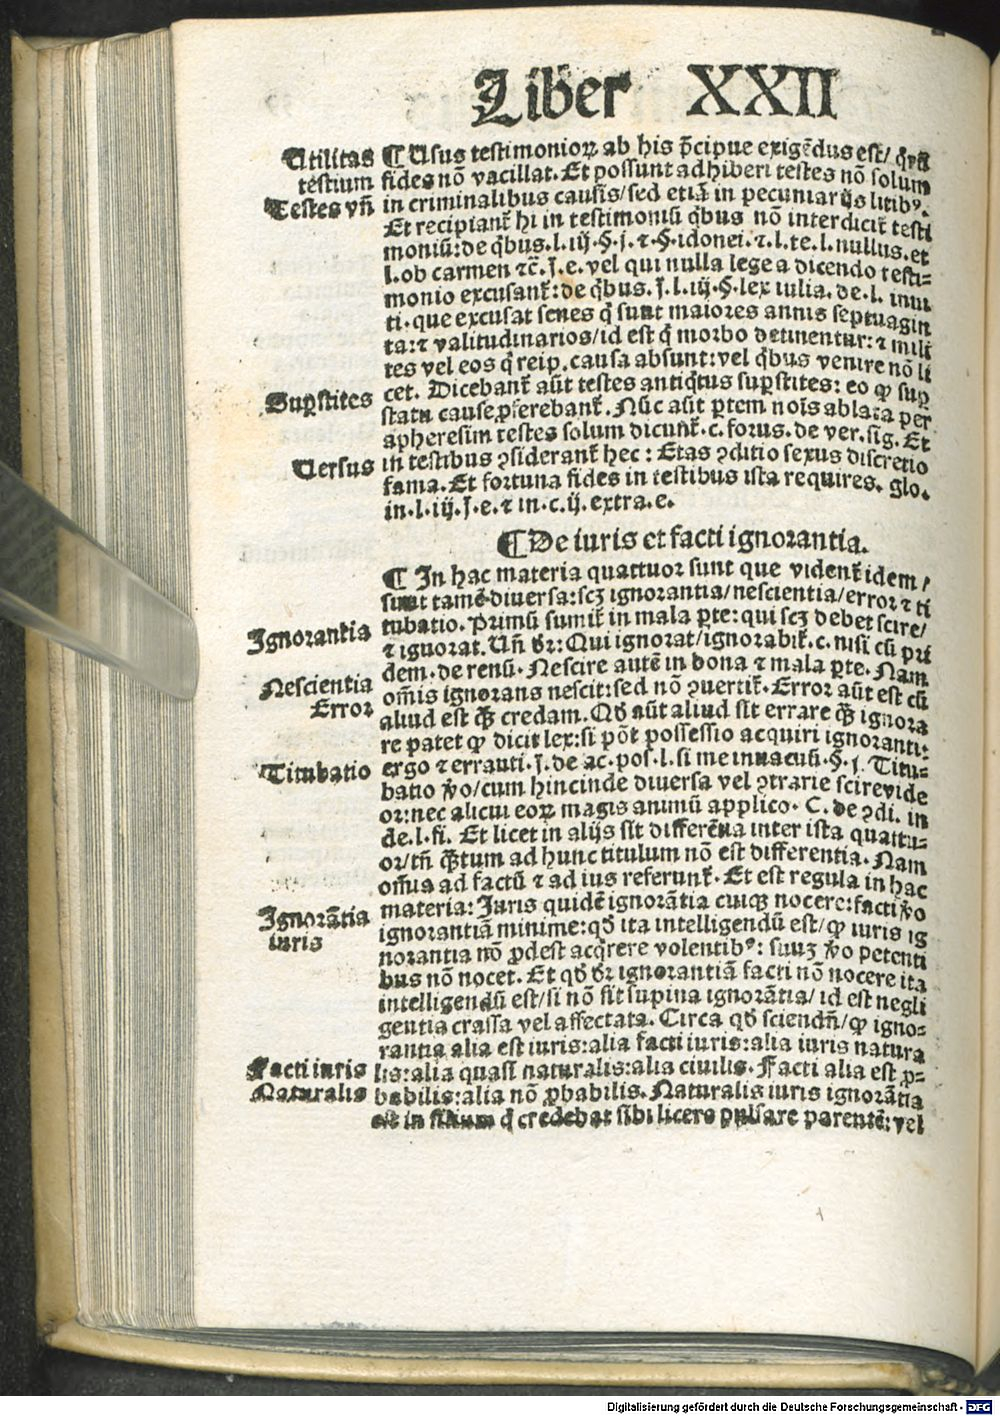 Liber XXII
Utilitas testium
Testes vñ
¶ Usus testimonioꝝ ab his p̄cipue exigẽdus est/ q̄rũ
fides nõ vacillat. Et possunt adhiberi testes nõ solum
in criminalibus causis/sed etiã in pecuniarijs litibꝰ.
Et recipiant̃ hi in testimoniũ q̇bus nõ interdicit̃ testi
moniũ: de q̇bus. l. iij. §. j. ⁊ §. idonei. ⁊. l. te. l. nullus. et
l. ob carmen ⁊c̃. ſ. e. vel qui nulla lege a dicendo testi-
monio excusant̃: de q̇bus. ſ. l. iij. §. lex iulia. de. l. inui
ti. que excusat senes q̇ sunt maiores annis septuagin
ta: ⁊ valitudinarios/id est q̇ morbo detinentur: ⁊ mili
tes vel eos q̇ reip. causa absunt: vel q̇bus venire nõ li
Suꝑstites
cet. Dicebant̃ aũt testes antiq̇tus suꝑstites: eo ꝙ suꝑ
statu cause ꝓferebant̃. Nũc aũt ꝑtem nois̃ ablata per
apheresim testes solum dicunt̃. c. forus. de ver. sig. Et
Versus
in testibus ꝯsiderant̃ hec: Etas ꝯditio sexus discretio
fama. Et fortuna fides in testibus ista requires. glo.
in. l. iij. ſ. e. ⁊ in. c. ij. extra. e.
¶ De iuris et facti ignorantia.
¶ In hac materia quattuor sunt que vident̃ idem/
sunt tamẽ diuersa: scꝫ ignorantia/nescientia/error ⁊ ti
Ignorantia
tubatio. Primũ sumit̃ in mala ꝑte: qui scꝫ debet scire/
⁊ ignorat. Uñ dr̃: Qui ignorat/ignorabit̃. c. nisi cũ pri
dem. de renũ. Nescire autẽ in bona ⁊ mala ꝑte. Nam
Nescientia
Error
om̃is ignorans nescit: sed nõ ꝯuertit̃. Error aũt est cũ
aliud est q̃ꝫ credam. Qđ aũt aliud sit errare q̃ꝫ ignora
re patet ꝙ dicit lex: si põt possessio acquiri ignoranti:
ergo ⁊ erranti. ſ. de ac. pos. l. si me in vacuã. §. j. Titu-
Titubatio
batio ṽo/cum hincinde diuersa vel ꝯtrarie scire vide
or: nec alicui eoꝝ magis animũ applico. C. de ꝯdi. in
de. l. fi. Et licet in alijs sit differẽtia inter ista quattu-
or/tñ q̃ꝫtum ad hunc titulum nõ est differentia. Nam
om̃ia ad factũ ⁊ ad ius referunt̃. Et est regula in hac
Ignorãtia iuris
materia: Juris quidẽ ignorãtia cuiqꝫ nocere: facti ṽo
ignorantiã minime: qđ ita intelligendũ est/ ꝙ iuris ig
norantia nõ ꝓdest acq̇rere volentibꝰ: suuꝫ ṽo petenti
bus nõ nocet. Et qđ dr̃ ignorantiã facti nõ nocere ita
intelligendũ est/si nõ sit supina ignorãtia/ id est negli
gentia crassa vel affectata. Circa qđ sciendñ/ ꝙ igno-
rantia alia est iuris: alia facti iuris: alia iuris natura
Facti iuris
Naturalis
lis: alia quasi naturalis: alia ciuilis. Facti alia est ꝓ-
babilis: alia nõ ꝓbabilis. Naturalis iuris ignorãtia
est in filium q̇ credebat sibi licere pulsare parentẽ: vel
Digitalisierung gefördert durch die Deutsche Forschungsgemeinschaft - DFG